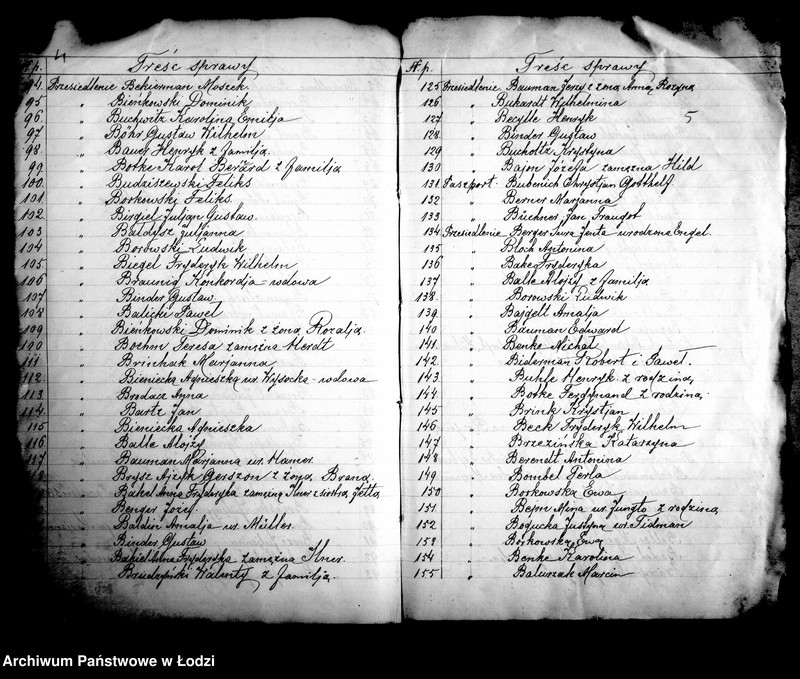 4
N. p. Treść sprawy
94. Przesiedlenie Bekierman Moszek
95 " Bieńkowski Dominik
96 " Buchwitz Karolina Emilja
97 " Böhr Gustaw Wilhelm
98. " Bauer Henryk z familją.
99 " Botke Karol z familją
100. " Budziszewski Feliks
101 " Borkowski Feliks.
102. " Birgiel Juljan Gustaw.
103 " Baldysz Juljanna
104 " Borowski Ludwik
105. " Biegel Fryderyk Wilhelm
106 " Braunig Konkordja - wdowa
107 " Binder Gustaw
108 " Balicki Paweł
109. " Bieńkowski Dominik z żoną Rozalją.
110 " Boehm Teresa zamężna Herdt
111 " Brischak Marjanna
112. " Bieniecka Agnieszka ur. Wysocka - wdowa
113 " Brodacz Anna
114. " Bartz Jan
115 " Bieniecka Agnieszka
116. " Balle Alojzy
117 " Bauman Marjanna ur. Hamer.
" Brysz Ajzyk Gerszon z żoną Braną
" Bakel Anna Fryderyka zamężna Ilner z siostrą Jettą
" Benger Józef.
" Baldin Amalja ur. Müller.
" Binder Gustaw
" Bakel Anna Fryderyka zamężna Ilner.
" Brudzyński Walenty z familją.
N. p. Treść sprawy
5
125 Przesiedlenie Bauman Jerzy z żoną Anną Rozyną
126 " Buhardt Wilhelmina
127 " Becylle Henryk
128. " Binder Gustaw
129 " Bucholtz Krystyna
130 " Bajon Józefa zamężna Hild
131 Paszport. Bubenich Chrystjan Gotthelf.
132 " Berner Marjanna
133 " Büchner Jan Traugot
134 Przesiedlenie Berger Sura Jenta urodzona Engel.
135 " Bloch Antonina
136 " Bake Fryderyka
137 " Balle Alojzy z familją
138. " Borowski Ludwik
139. " Bajdell Amalja
140 " Bauman Edward
141. " Benke Michał
142. " Biderman Robert i Paweł.
143. " Buhle Henryk z rodziną,
144. " Botke Ferdynand z rodziną.
145 " Brink Krystjan
146 " Beck Fryderyk Wilhelm
147 " Brzezińska Katarzyna
148 " Berendt Antonina
149 " Bombel Perla
150 " Borkowska Ewa
151 " Mina ur. Jungto z rodziną,
152 " Bogucka Justyna ur. Tidman
153 " Borkowska Ewa
154 " Benke Karolina
155 " Baluszak Marcin
Archiwum Państwowe w Łodzi